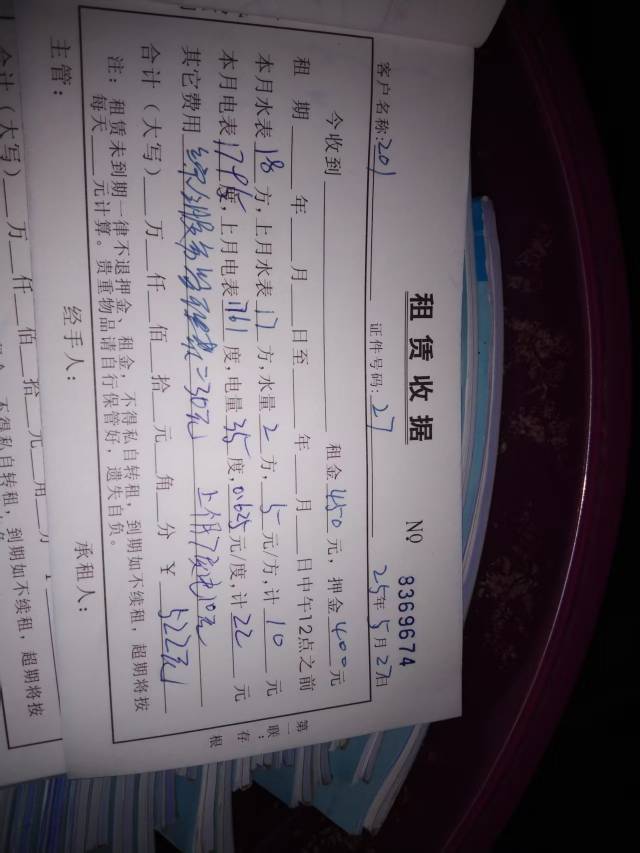 租赁收据
NO 8369674
客户名称:201 证件号码:27 25年5月27日
今收到 租金450元，押金400元
租 期 年 月 日至 年 月 日中午12点之前
本月水表18方，上月水表17方，水量2方，5元/方，计10元
本月电表1795度，上月电表1761度，电量35度，0.625元/度，计22元
其它费用 =30元 上个月
合计（大写） 万 仟 佰 拾 元 角 分 ￥522元
注：租赁未到期一律不退押金、租金，不得私自转租，到期如不续租，超期将按
每天 元计算。贵重物品请自行保管好，遗失自负。
主管： 经手人： 承租人：
第一联：存根
合计（大写） 万 仟 佰 拾 元 角
不得私自转租，到期如不续租，超期将按